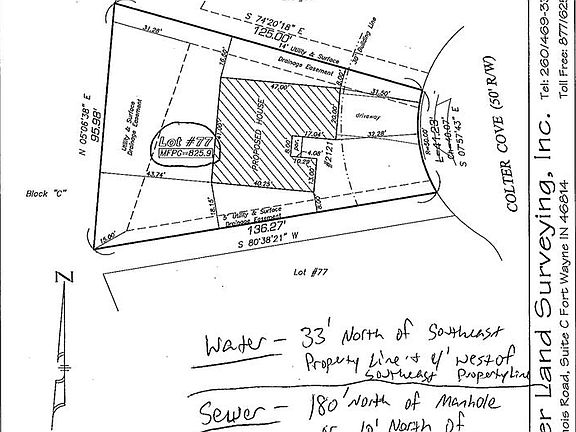 S 74°20'18" E
125.00'
30' Building Line
14' Utility & Surface
Drainage Easement
31.28'
16.00'
8.00'
47.00'
31.50'
driveway
20.00'
N 05°06'38" E
95.98'
Utility & Surface
Drainage Easement
Lot #77
MFPG=825.9
PROPOSED HOUSE
17.04'
32.28'
4.08'
10.29'
13.00'
#2121
43.74'
40.25'
8.00'
Block "C"
15.00'
5' Utility & Surface
Drainage Easement
136.27'
S 80°38'21" W
R=50.00'
S 07°57'43" E
COLTER COVE (50' R/W)
Lot #77
N
Water - 33' North of Southeast
Property Line & 4' West of
Southeast Property Line
Sewer - 180' North of Manhole
North of
er Land Surveying, Inc.
Tel: 260/469-33
nois Road, Suite C Fort Wayne IN 46814
Toll Free: 877/625